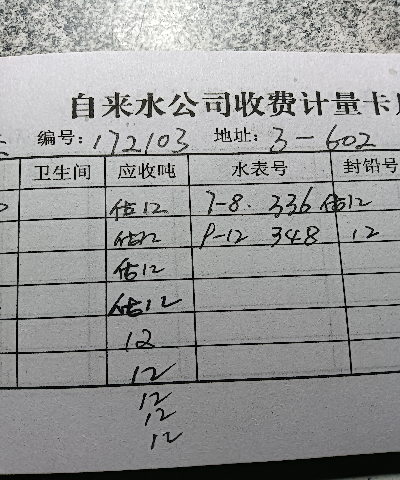 自来水公司收费计量卡
编号: 172103 地址: 3-602
卫生间 应收吨 水表号 封铅号
估12 7-8. 336 估12
估12 9-12 348 12
估12
估12
12
12
12
12
12